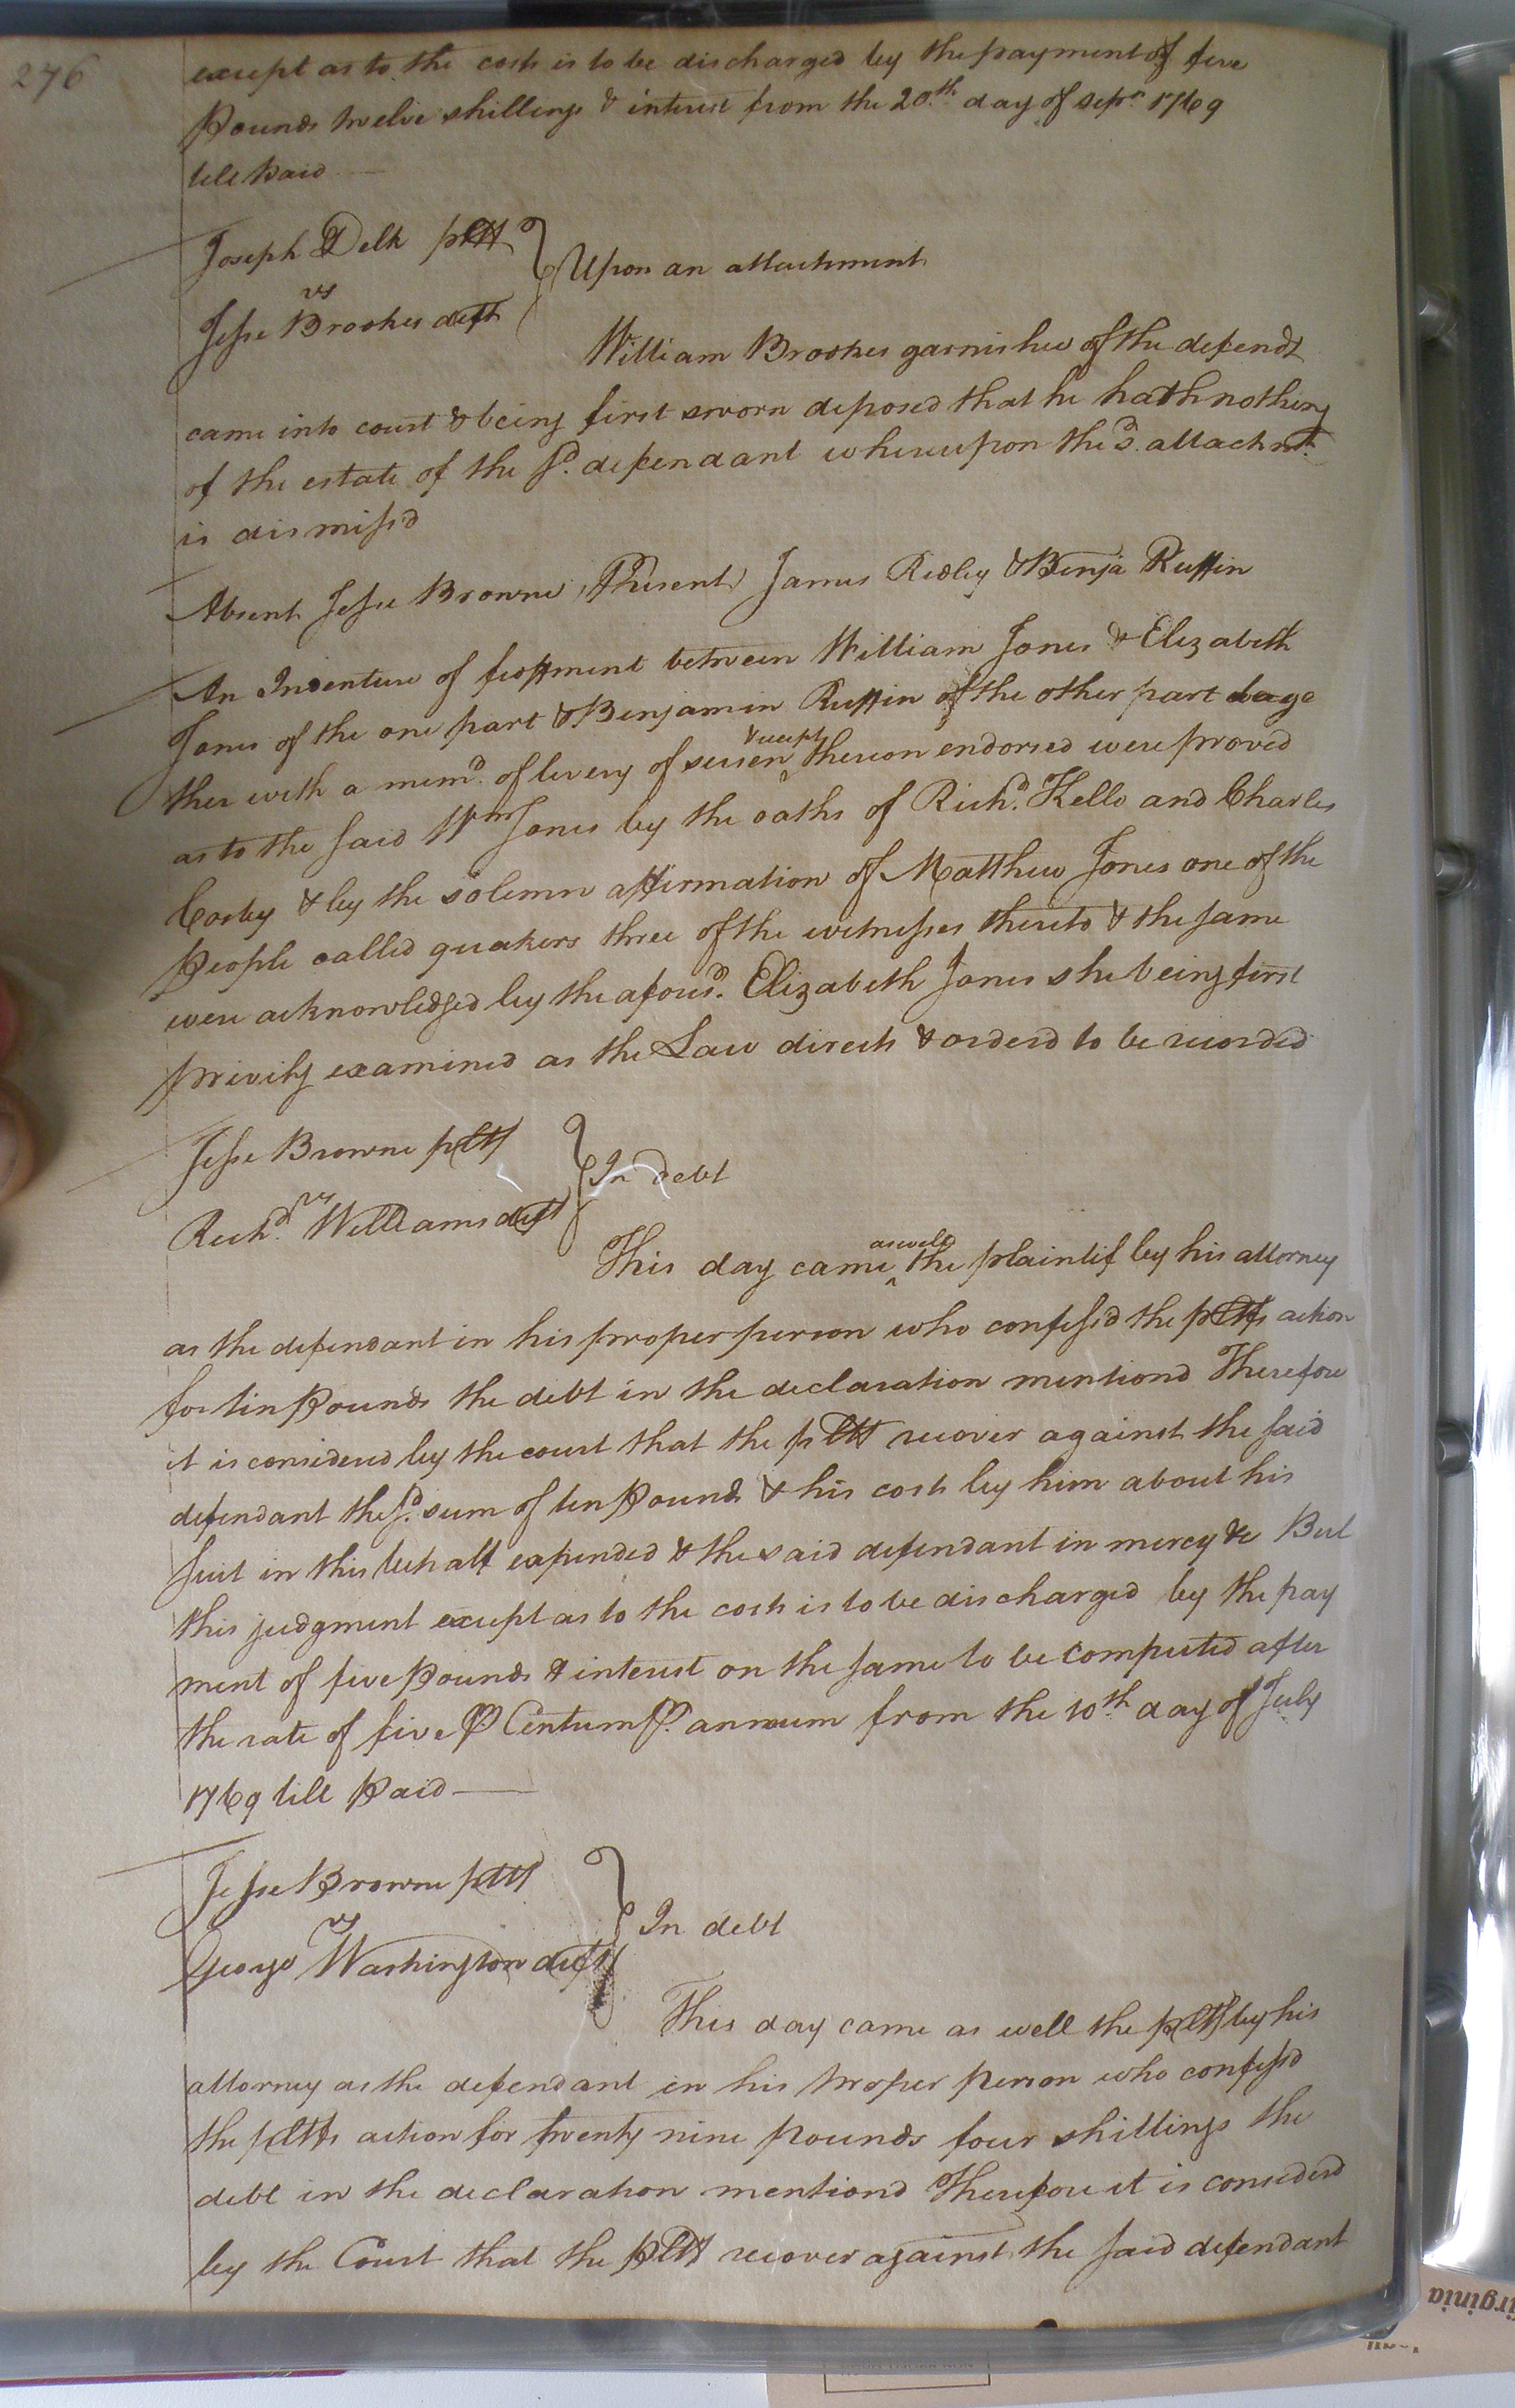 276
except as to the costs is to be discharged by the payment of five
Pounds twelve shillings & interest from the 20th. day of Sepr. 1769
till paid
Joseph Delk pltf
vs
Jesse Brookes deft
Upon an attachment
William Brookes garnishee of the defendt
came into court & being first sworn deposed that he hath nothing
of the estate of the sd. defendant whereupon the sd. attachmt.
is dismiss'd
Absent Jesse Browne, Present James Ridley & Benja Ruffin
An Indenture of feoffment between William Jones & Elizabeth
Jones of the one part & Benjamin Ruffin of the other part toge
ther with a memd. of livery of seisen & receipt thereon endorsed were proved
as to the said Wm Jones by the oaths of Richd. Kello and Charles
Cosby & by the solemn affirmation of Matthew Jones one of the
People called quakers three of the witnesses thereto & the same
were acknowledged by the aforesd. Elizabeth Jones she being first
privily examined as the Law directs & orderd to be recorded
Jesse Browne pltf
vs
Richd. Williams deft
In debt
This day came as well the plaintif by his attorney
as the defendant in his proper person who confess'd the pltfs action
for tin Pounds the debt in the declaration mentiond Therefore
it is considered by the court that the pltf recover against the said
defendant the sd. sum of ten Pounds & his costs by him about his
suit in this behalf expended & the said defendant in mercy &c But
this judgment except as to the costs is to be discharged by the pay
ment of five Pounds & interest on the same to be computed after
the rate of five P Centum P. annum from the 10th day of July
1769 till Paid
Jesse Browne pltf
vs
George Washington deft
In debt
This day came as well the pltf by his
attorney as the defendant in his proper person who confess'd
the pltfs action for twenty nine pounds four shillings the
debt in the declaration mentiond Therefore it is considerd
by the Court that the pltf recover against the said defendant